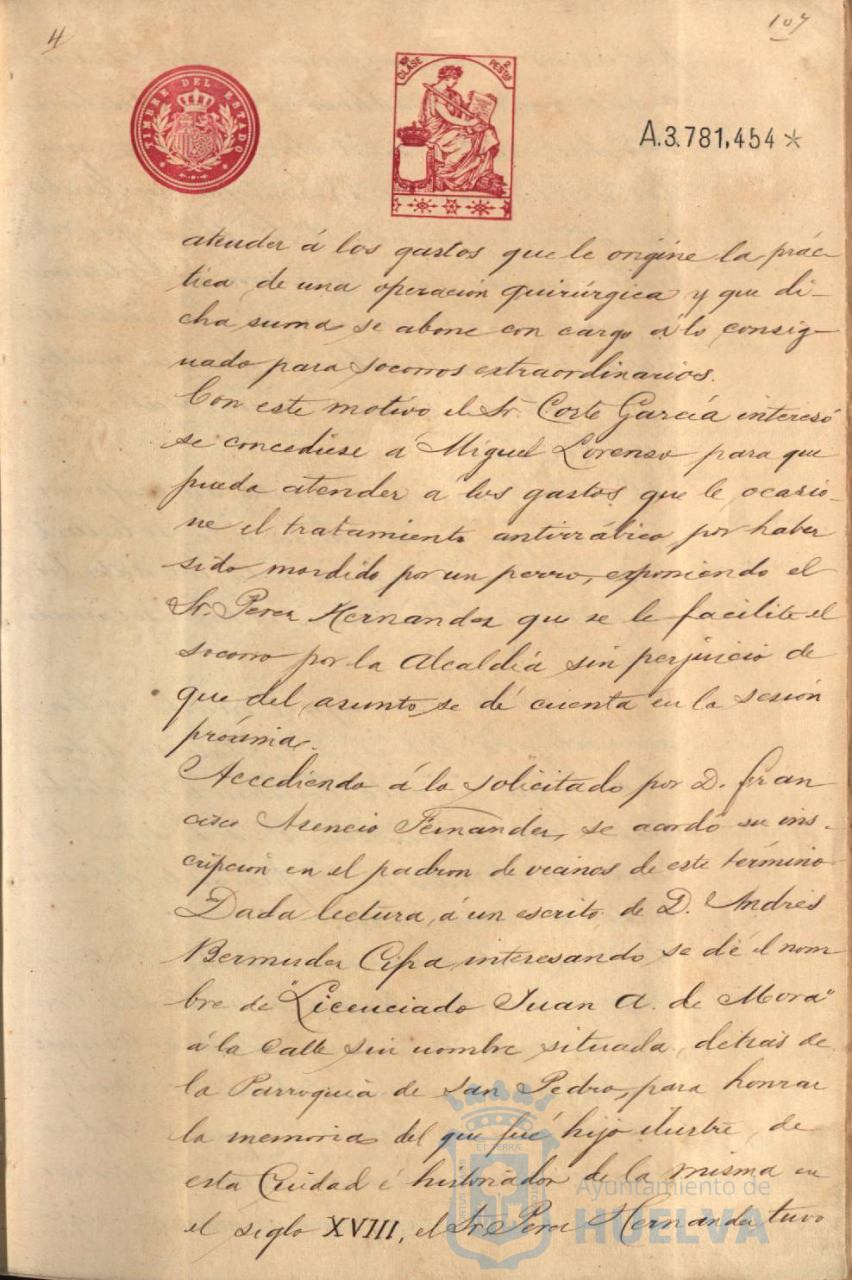 4
107
TIMBRE DEL ESTADO
10ª CLASE
2 PESTAS
A.3.781,454 *
atender á los gastos que le origine la prác-
tica de una operación quirúrgica y que di-
cha suma se abone con cargo á lo consig-
nado para socorros extraordinarios.
Con este motivo el Sr. Corte García interesó
se concediese á Miguel Lorenzo para que
pueda atender á los gastos que le ocasio-
ne el tratamiento antirrábico por haber
sido mordido por un perro, exponiendo el
Sr. Perez Hernandez que se le facilite el
socorro por la Alcaldía sin perjuicio de
que del asunto se dé cuenta en la sesión
próxima.
Accediendo á lo solicitado por D. Fran
cisco Asencio Fernandez, se acordó su ins-
cripción en el padron de vecinos de este término
Dada lectura á un escrito de D. Andrés
Bermudez Cifra interesando se dé el nom
bre de "Licenciado Juan A. de Mora"
á la calle sin nombre situada detrás de
la Parroquia de San Pedro, para honrar
la memoria del que fué hijo ilustre de
esta Ciudad é historiador de la misma en
el siglo XVIII, el Sr Perez Hernandez tuvo
Ayuntamiento de
HUELVA